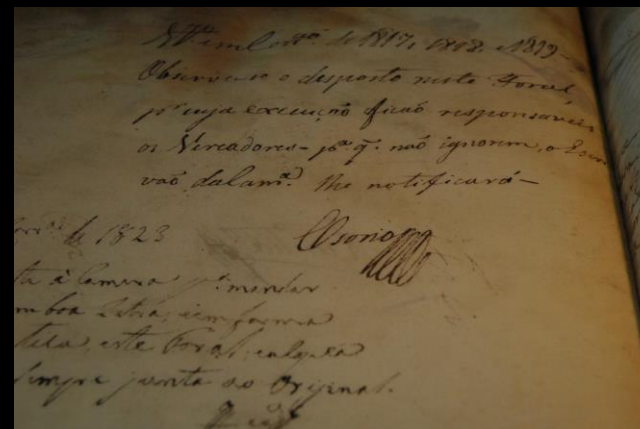 de 1817, 1818, e 1819 -
Observese o desposto neste Foral,
pr cuja execução ficaõ responsaveis
os Vereadores - pa q. naõ ignorem, o Escri
vaõ dacama. lhe notificará -
de 1823 Ozorio
ta á Camera pa mandar
m boa Letra, em forma
este Foral, e
sempre junta ao Original.